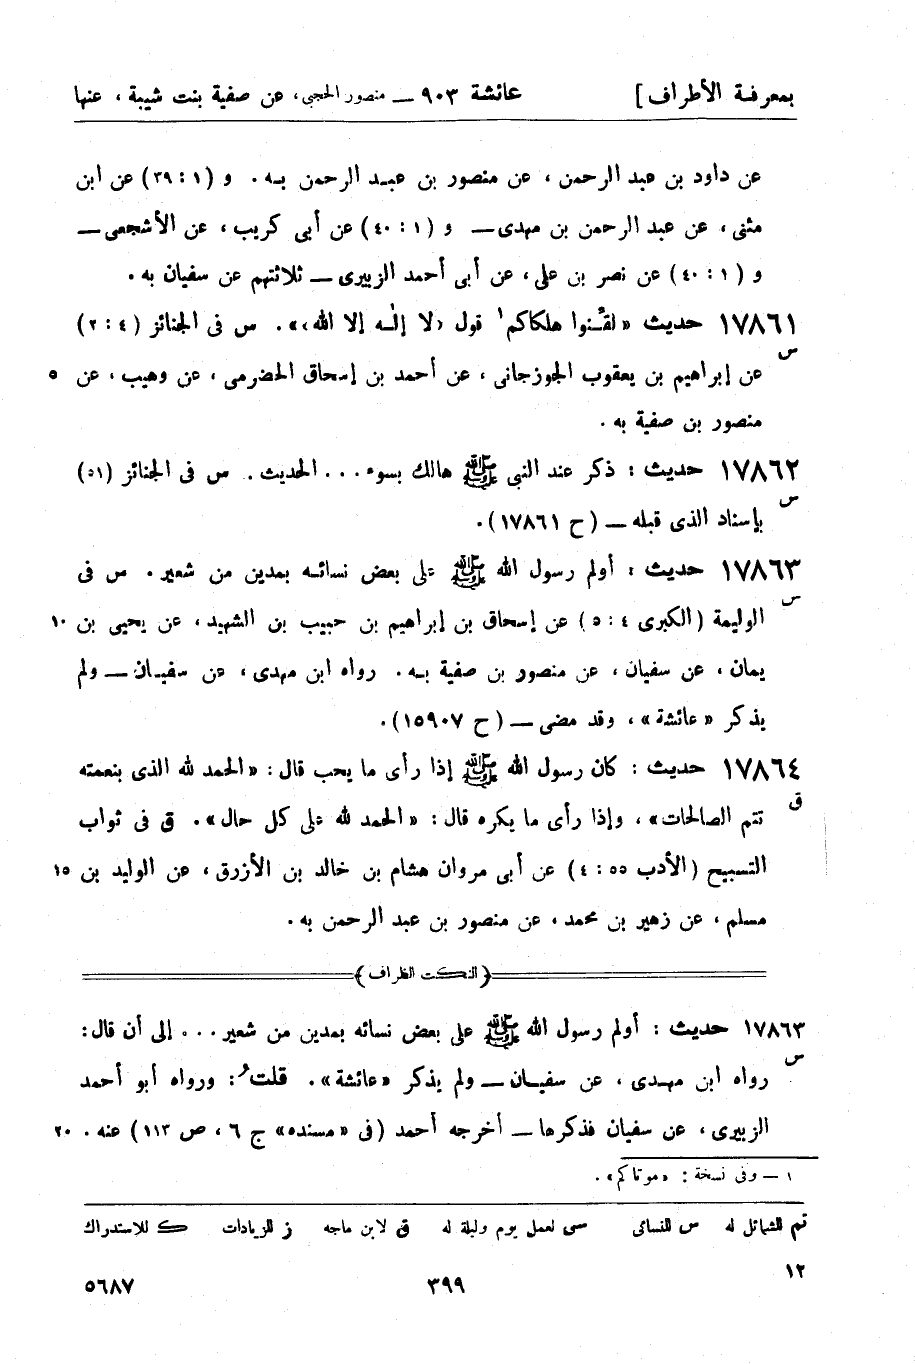 بمعرفة الأطراف] عائشة ٩٠٣ — منصور الحجبي، عن صفية بنت شيبة، عنها
عن داود بن عبد الرحمن، عن منصور بن عبد الرحمن به. و (١ : ٣٩) عن ابن
مثنى، عن عبد الرحمن بن مهدى — و (١ : ٤٠) عن أبى كريب، عن الأشجعى —
و (١ : ٤٠) عن نصر بن على، عن أبى أحمد الزبيرى — ثلاثتهم عن سفيان به.
١٧٨٦١ حديث «لقّنوا هلكاكم١ قول ‹لا إلٰه إلا الله›». س فى الجنائز (٤ : ٢)
س
عن إبراهيم بن يعقوب الجوزجانى، عن أحمد بن إسحاق الحضرمى، عن وهيب، عن ٥
منصور بن صفية به.
١٧٨٦٢ حديث : ذكر عند النبى ﷺ هالك بسوء... الحديث. س فى الجنائز (٥١)
س
بإسناد الذى قبله — (ح ١٧٨٦١).
١٧٨٦٣ حديث : أولم رسول الله ﷺ على بعض نسائه بمدين من شعير. س فى
س
الوليمة (الكبرى ٤ : ٥) عن إسحاق بن إبراهيم بن حبيب بن الشهيد، عن يحيى بن ١٠
يمان، عن سفيان، عن منصور بن صفية به. رواه ابن مهدى، عن سفيان — ولم
يذكر «عائشة»، وقد مضى — (ح ١٥٩٠٧).
١٧٨٦٤ حديث : كان رسول الله ﷺ إذا رأى ما يحب قال: «الحمد لله الذى بنعمته
ق
تتم الصالحات»، وإذا رأى ما يكره قال: «الحمد لله على كل حال». ق فى ثواب
التسبيح (الأدب ٥٥ : ٤) عن أبى مروان هشام بن خالد بن الأزرق، عن الوليد بن ١٥
مسلم، عن زهير بن محمد، عن منصور بن عبد الرحمن به.
(النكت الظراف)
١٧٨٦٣ حديث : أولم رسول الله ﷺ على بعض نسائه بمدين من شعير... إلى أن قال:
س
رواه ابن مهدى، عن سفيان — ولم يذكر «عائشة». قلت: ورواه أبو أحمد
الزبيرى، عن سفيان فذكرها — أخرجه أحمد (فى «مسنده» ج ٦، ص ١١٣) عنه. ٢٠
١ — وفى نسخة : «موتاكم».
تم للشمائل له س للنسائى سى لعمل يوم وليلة له ق لابن ماجه ز للزيادات ك للاستدراك
١٢
٣٩٩
٥٦٨٧